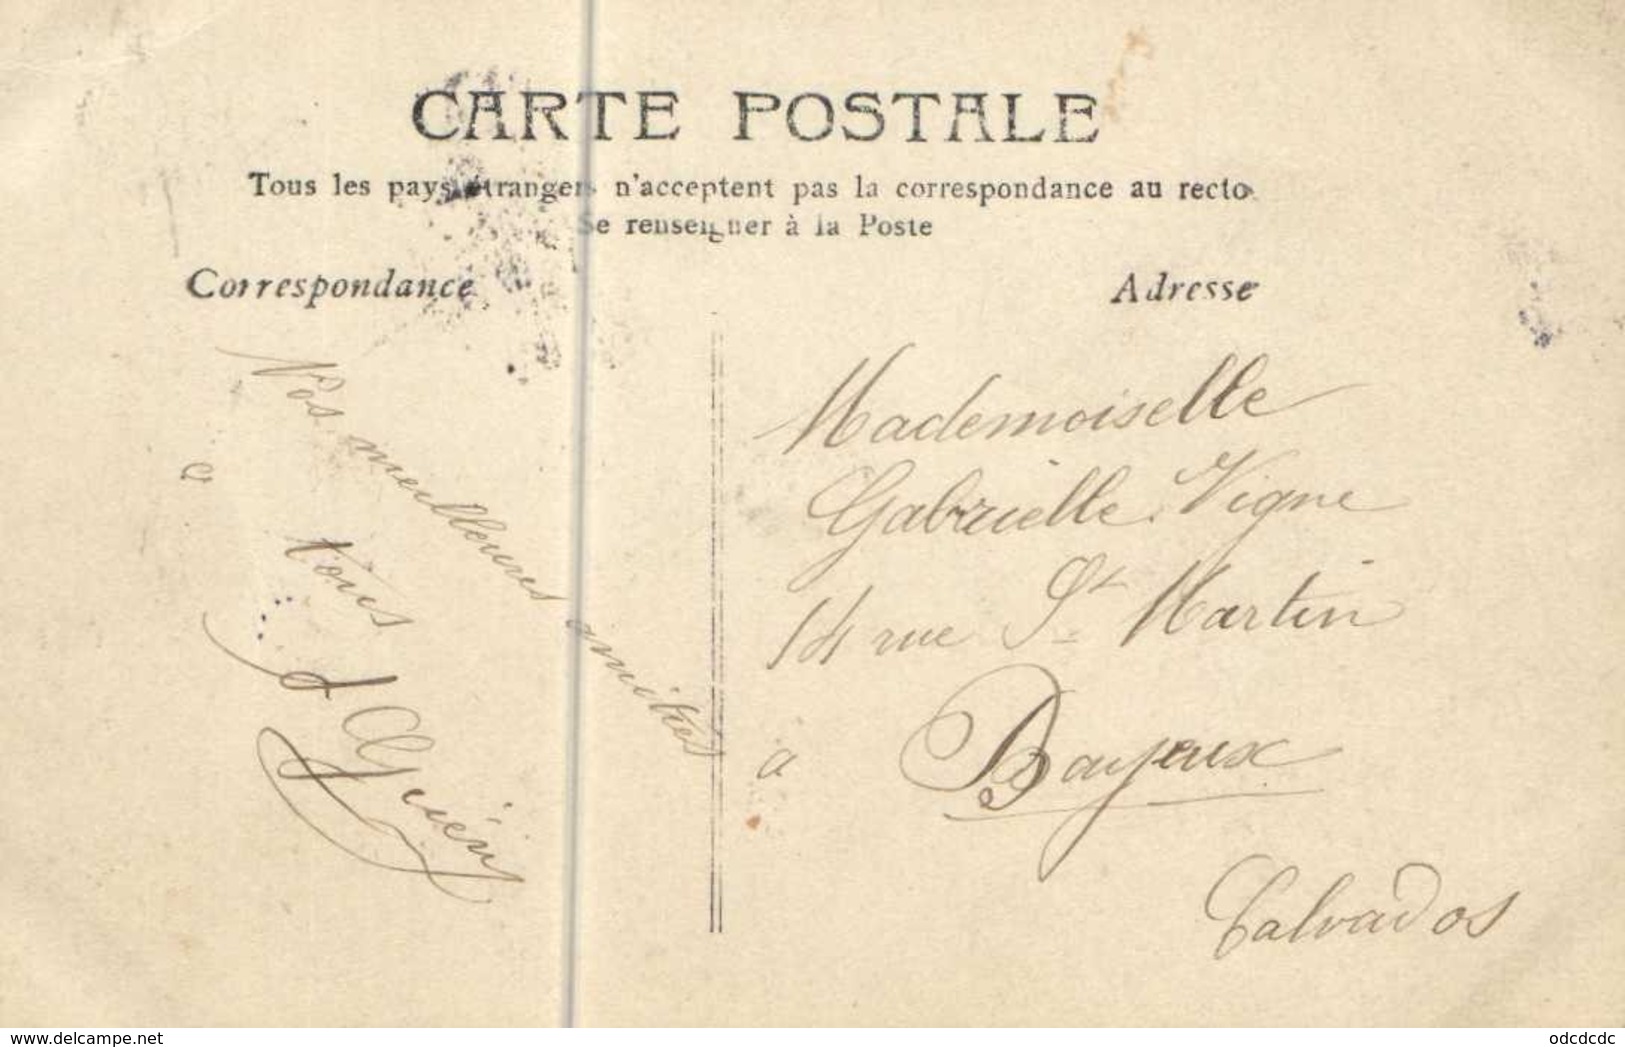 CARTE POSTALE
Tous les pays étrangers n'acceptent pas la correspondance au recto
Se renseigner à la Poste
Correspondance
Adresse
Nos meilleures amitiés
à tous
Guérin
Mademoiselle
Gabrielle Vigne
14 rue St Martin
à Bayeux
Calvados
www.delcampe.net
odcdcdc